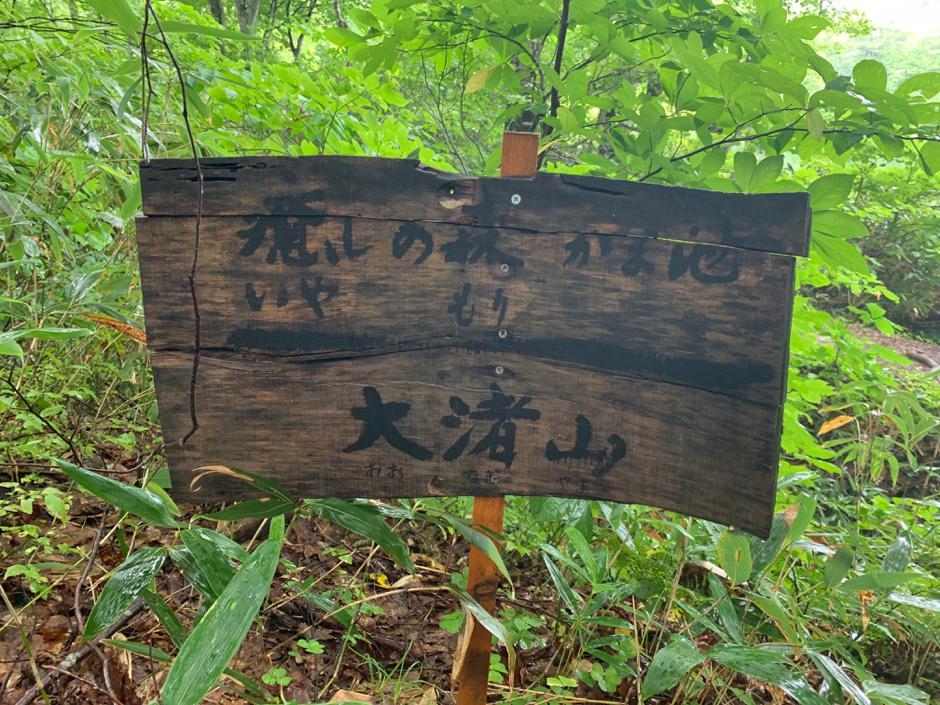 癒しの森 がま池
いや もり
大渚山
おお なぎ やま